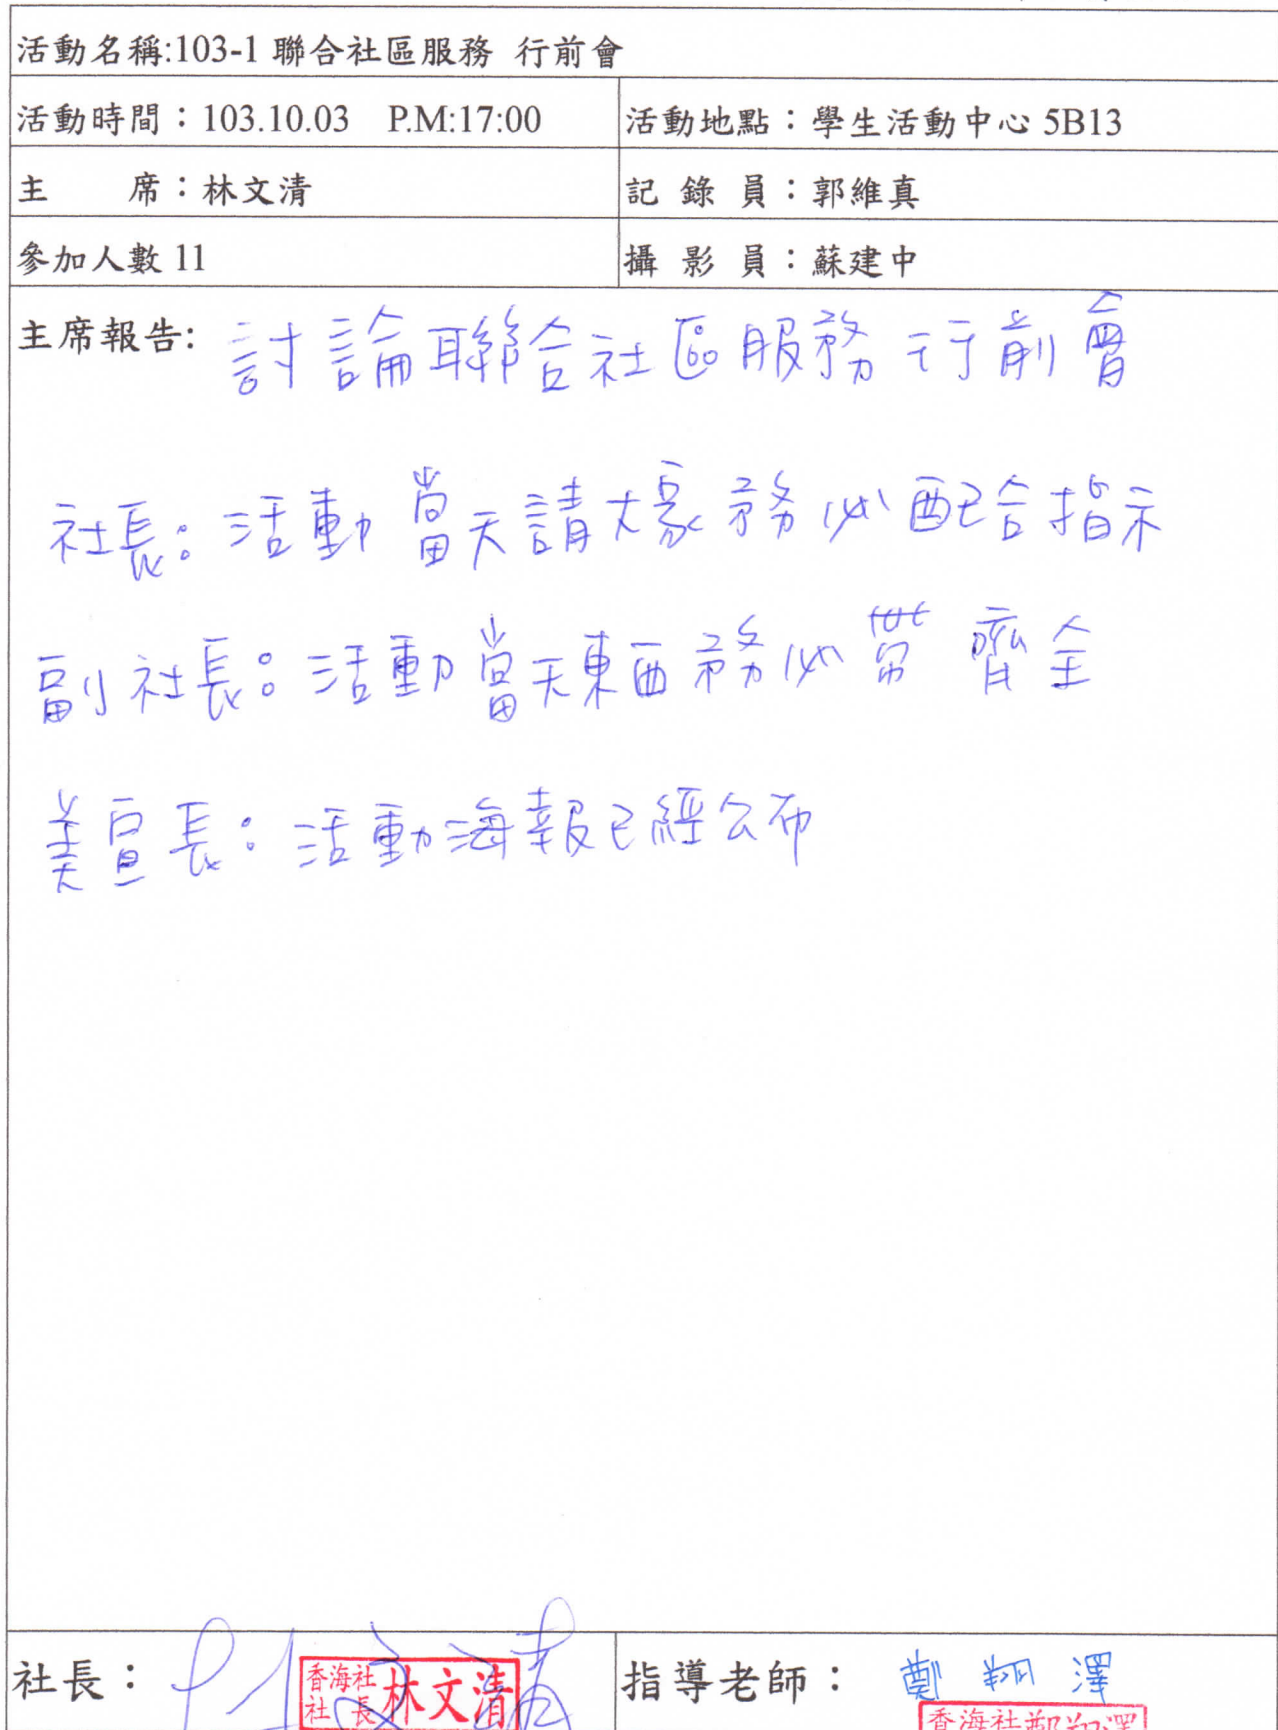 活動名稱:103-1 聯合社區服務 行前會
活動時間：103.10.03 P.M:17:00
活動地點：學生活動中心 5B13
主 席：林文清
記 錄 員：郭維真
參加人數 11
攝 影 員：蘇建中
主席報告: 討論聯合社區服務行前會
社長：活動當天請大家務必配合指示
副社長：活動當天東西務必帶齊全
美宣長：活動海報已經公布
社長： 林文清
香海社
社長 林文清
指導老師： 鄭翔澤
香海社鄭翔澤